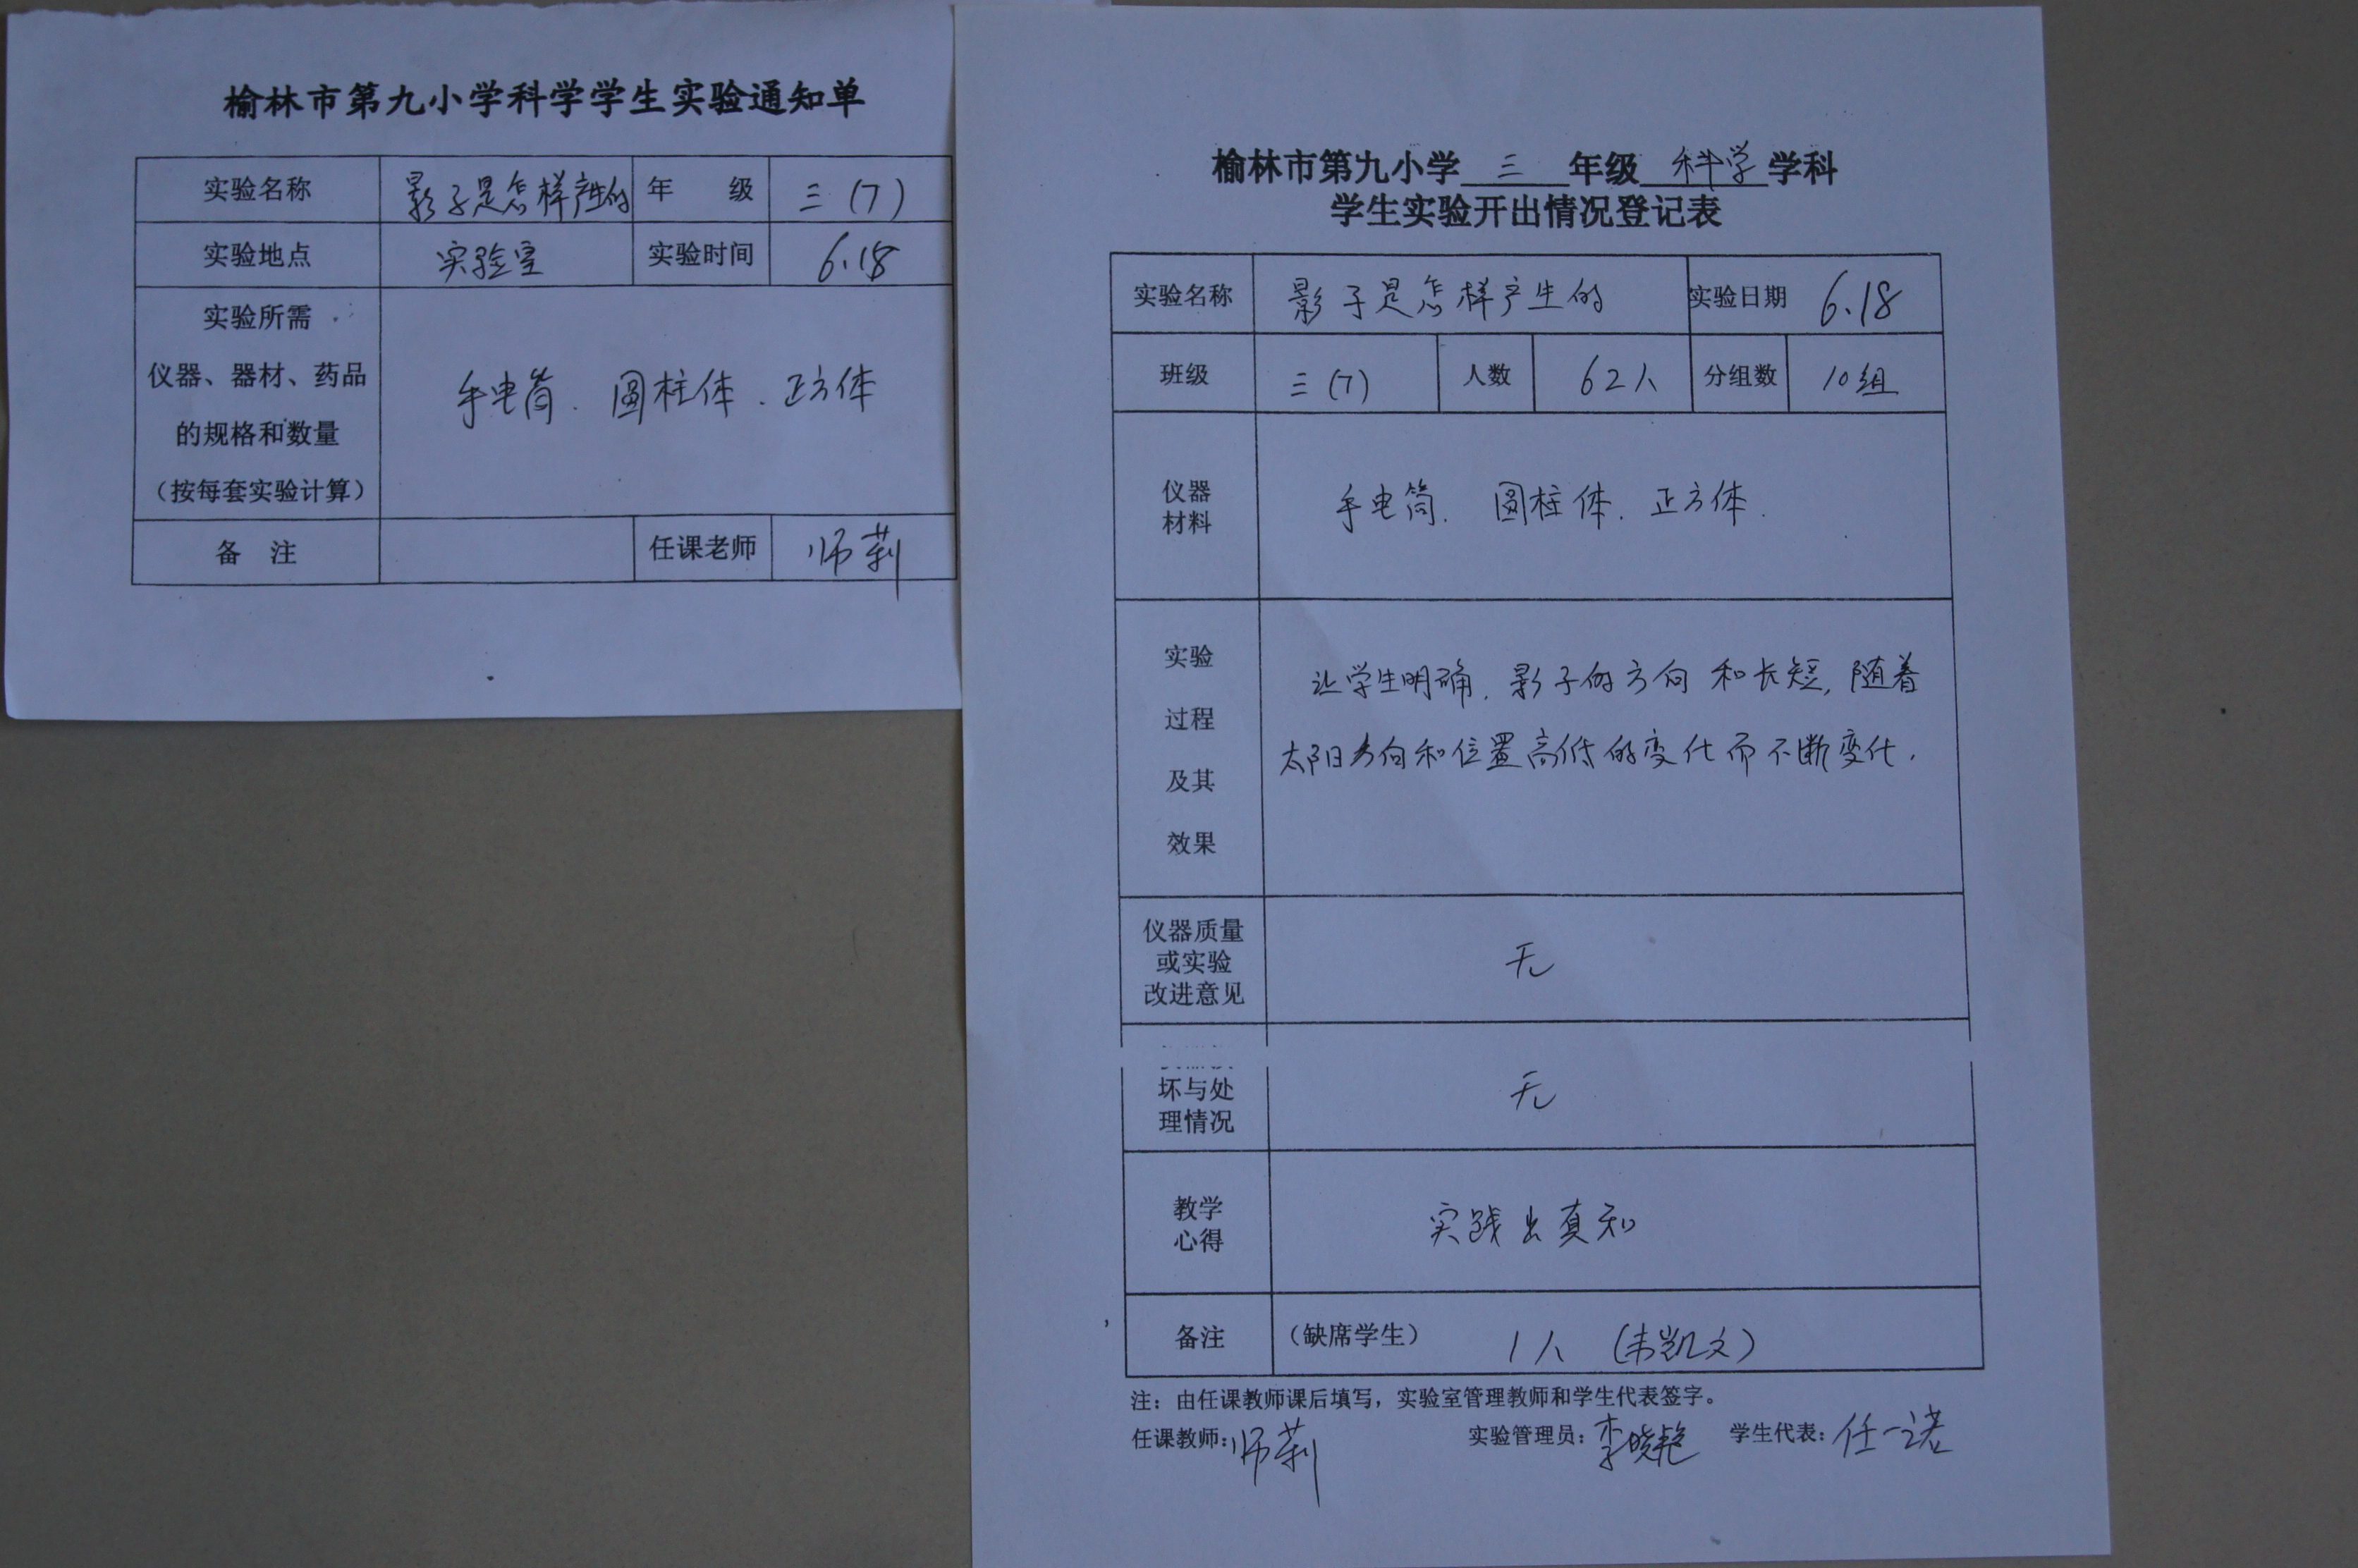 榆林市第九小学科学学生实验通知单
实验名称 影子是怎样产生的 年 级 三(7)
实验地点 实验室 实验时间 6.18
实验所需
仪器、器材、药品
的规格和数量
（按每套实验计算）
手电筒、圆柱体、正方体
备 注 任课老师 师莉
榆林市第九小学 三 年级 科学 学科
学生实验开出情况登记表
实验名称 影子是怎样产生的 实验日期 6.18
班级 三(7) 人数 62人 分组数 10组
仪器
材料
手电筒、圆柱体、正方体.
实验
过程
及其
效果
让学生明确,影子的方向和长短,随着
太阳方向和位置高低的变化而不断变化.
仪器质量
或实验
改进意见
无
坏与处
理情况
无
教学
心得
实践出真知
备注 （缺席学生） 1人 (凯文)
注：由任课教师课后填写，实验室管理教师和学生代表签字。
任课教师：师莉 实验管理员：李晓艳 学生代表：任一诺